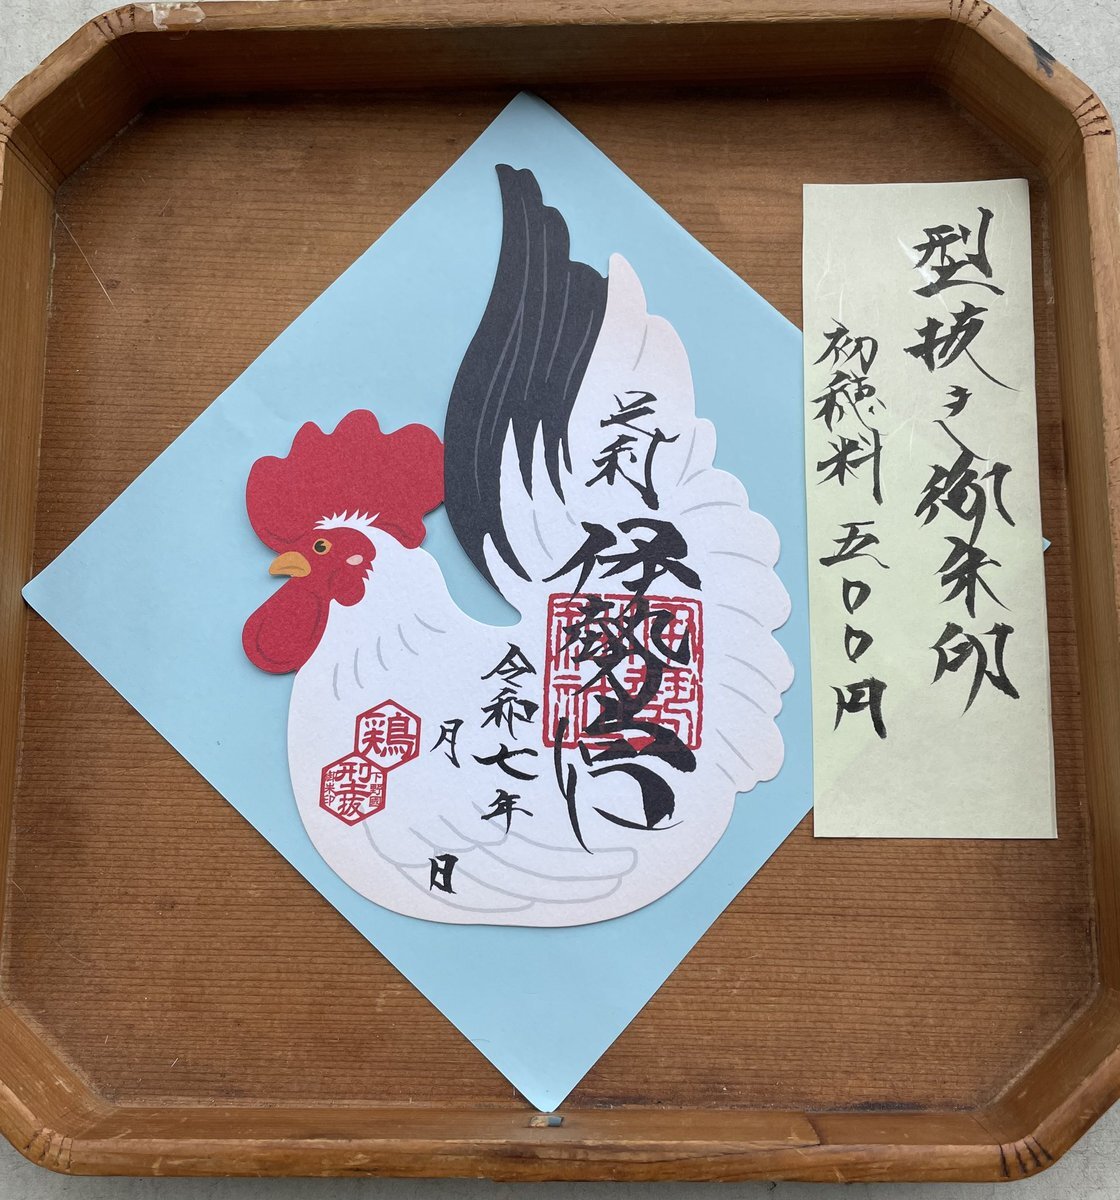 型抜き御朱印
初穂料 五〇〇円
足利
伊勢
令和七年
月
日
鶏
下野國
型抜
御朱印